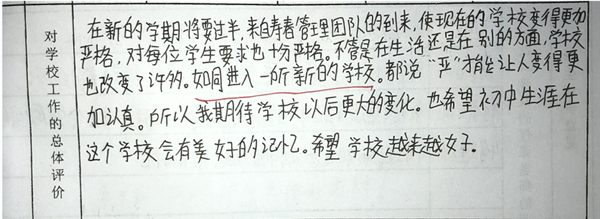 对学校工作的总体评价
在新的学期将要过半,来自寿春管理团队的到来,使现在的学校变得更加
严格,对每位学生要求也十分严格。不管是在生活还是在别的方面,学校
也改变了许多。如同进入一所新的学校。都说“严”才能让人变得更
加认真。所以我期待学校以后更大的变化。也希望初中生涯在
这个学校会有美好的记忆。希望学校越来越好。